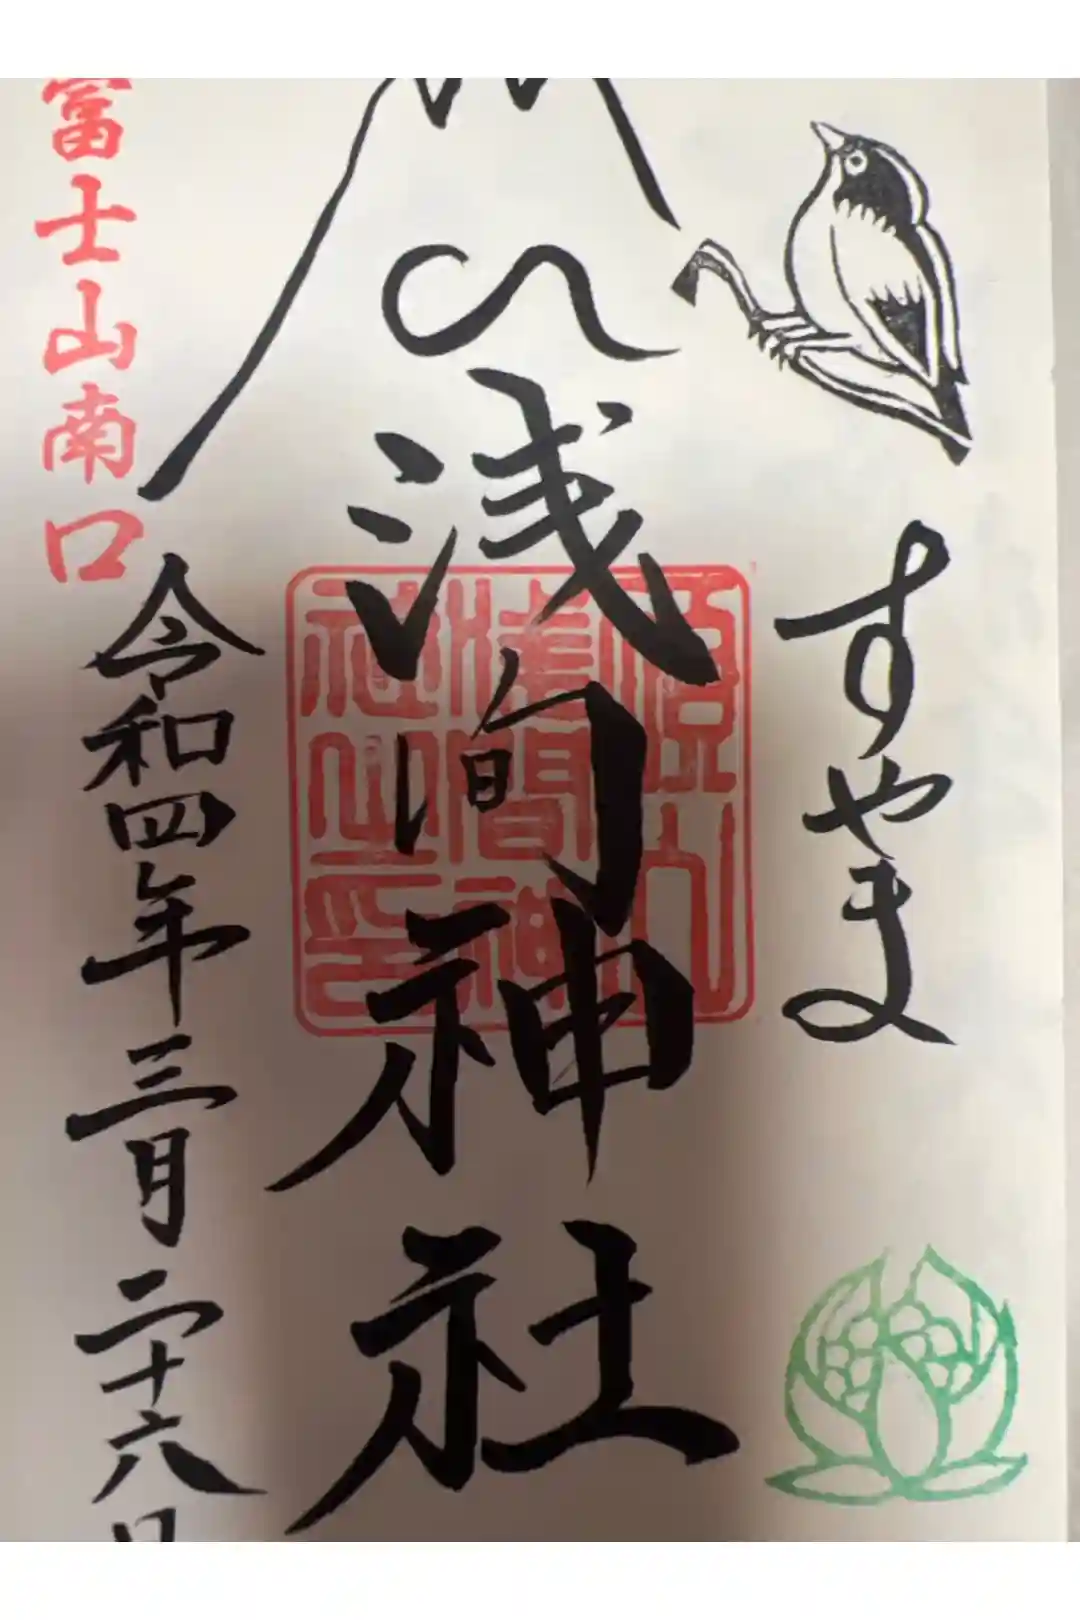 すやま
浅间神社
須山
浅間神
社之印
富士山南口
令和四年三月二十六日